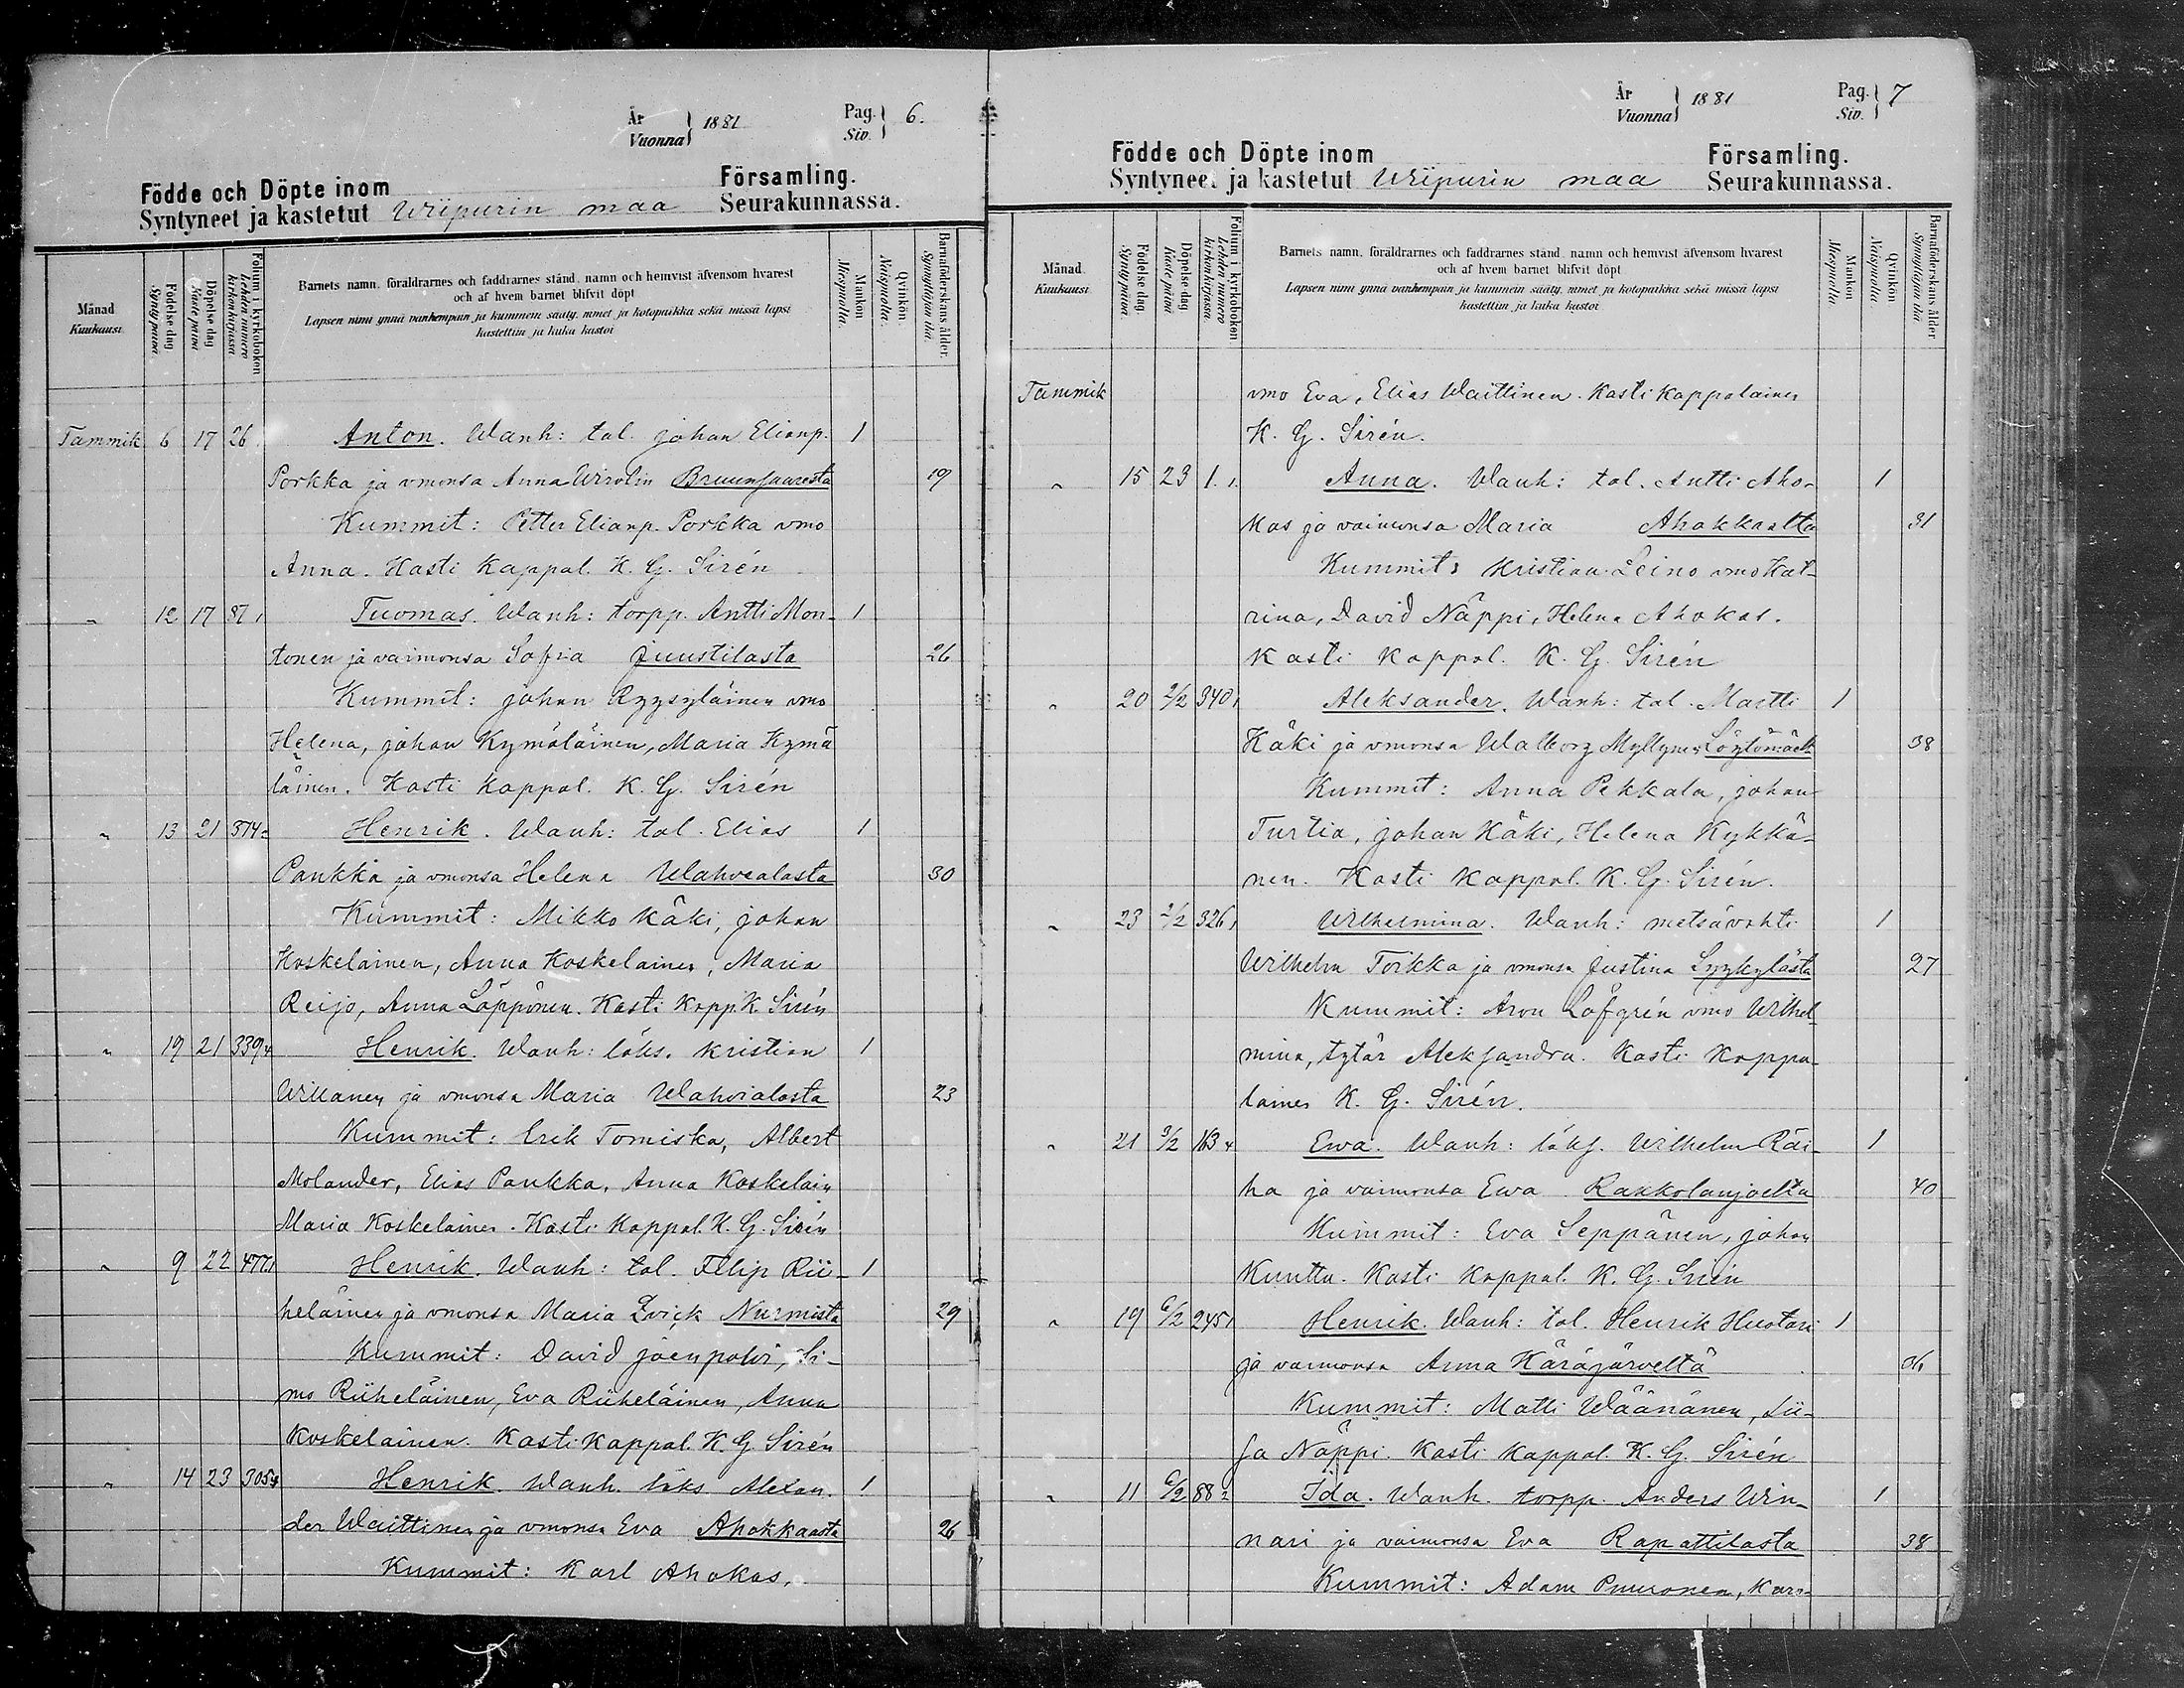 År
Vuonna } 1881
Pag.
Siv. } 6.
Födde och Döpte inom Församling.
Syntyneet ja kastetut Wiipurin maa Seurakunnassa.
Månad Kuukausi
Födelse dag Syntypäivä
Döpelse dag Kaste päivä
Folium i kyrkoboken Lehden numero kirkonkirjassa
Barnets namn, föräldrarnes och faddrarnes stånd, namn och hemvist äfvensom hvarest
och af hvem barnet blifvit döpt
Lapsen nimi ynnä vanhempain ja kummein sääty, nimet ja kotopaikka sekä missä lapsi
kastettiin ja kuka kastoi
Mankön. Miespuolia.
Qvinkön. Naispuolia.
Barnaföderskans ålder. Synnyttäjän ikä.
Tammik 6 17 26. Anton. Wanh: tal. Johan Elianp. 1
Porkka ja vmonsa Anna Wirolin Bruunsaaresta 19
Kummit: Petter Elianp. Porkka vmo
Anna. Kasti Kappal. K. G. Sirén
" 12 17 87, Tuomas. Wanh: torpp. Antti Mon- 1
tonen ja vaimonsa Sofia Juustilasta 26
Kummit: Johan Ryysyläinen vmo
Helena, Johan Kymäläinen, Maria Kymä
läinen. Kasti Kappal. K. G. Sirén
" 13 21 374 Henrik. Wanh: tal. Elias 1
Paukka ja vmonsa Helena Wahvialasta 30
Kummit: Mikko Käki, Johan
Koskelainen, Anna Koskelainen, Maria
Reijo, Anna Läppönen. Kasti Kapp. K. Sirén
" 19 21 339 4 Henrik. Wanh: läks. Kristian 1
Willanen ja vmonsa Maria Wahvialasta 23
Kummit: Erik Tomiska, Albert
Molander, Elias Paukka, Anna Koskelain
Maria Koskelainen. Kasti Kappal. K. G. Sirén
" 9 22 477 1 Henrik. Wanh: tal. Filip Rii- 1
heläinen ja vmonsa Maria Zvick Nurmista 29
Kummit: David Joenpolvi, Si-
mo Riiheläinen, Eva Riiheläinen, Anna
Koskelainen. Kasti Kappal. K. G. Sirén
" 14 23 305 4 Henrik. Wanh. läks. Alexan- 1
der Waittinen ja vmonsa Eva Ahokkaasta 26
Kummit: Karl Ahokas,
År
Vuonna } 1881
Pag.
Siv. } 7
Födde och Döpte inom Församling.
Syntyneet ja kastetut Wiipurin maa Seurakunnassa.
Månad Kuukausi
Födelse dag Syntypäivä
Döpelse dag Kaste päivä
Folium i kyrkoboken Lehden numero kirkonkirjassa
Barnets namn, föräldrarnes och faddrarnes stånd, namn och hemvist äfvensom hvarest
och af hvem barnet blifvit döpt
Lapsen nimi ynnä vanhempain ja kummein sääty, nimet ja kotopaikka sekä missä lapsi
kastettiin ja kuka kastoi
Mankön Miespuolia
Qvinkön. Naispuolia.
Barnaföderskans ålder Synnyttäjän ikä
Tammik vmo Eva, Elias Waittinen. Kasti Kappalainen
K. G. Sirén.
" 15 23 1. 1. Anna. Wanh: tal. Antti Aho- 1
kas ja vaimonsa Maria Ahokkaalta 31
Kummit: Kristian Leino vmo Kat-
rina, David Näppi, Helena Ahokas.
Kasti Kappal. K. G. Sirén
" 20 2/2 340 1 Aleksander. Wanh: tal. Martti 1
Käki ja vmonsa Walborg Myllynen Löytömäelt 38
Kummit: Anna Pekkala, Johan
Turtia, Johan Käki, Helena Kykkä-
nen. Kasti Kappal. K. G. Sirén.
" 23 2/2 326 1 Wilhelmina. Wanh: metsävahti 1
Wilhelm Torkka ja vmonsa Justina Lyykylästä 27
Kummit: Aron Löfgrén vmo Wilhel-
mina, tytär Aleksandra. Kasti Kappa-
lainen K. G. Sirén.
" 21 3/2 163 4 Ewa. Wanh: läks. Wilhelm Räi- 1
ha ja vaimonsa Ewa Rakkolanjoelta 40
Kummit: Eva Seppänen, Johan
Kunttu. Kasti Kappal. K. G. Sirén
" 19 6/2 245 1 Henrik. Wanh: tal. Henrik Huotari 1
ja vaimonsa Anna Käräjärveltä
Kummit: Matti Wäänänen, Lii-
sa Näppi. Kasti Kappal. K. G. Sirén
" 11 6/2 88 2 Ida. Wanh. torpp. Anders Win- 1
nari ja vaimonsa Eva Rapattilasta 38
Kummit: Adam Puuronen, Kars-